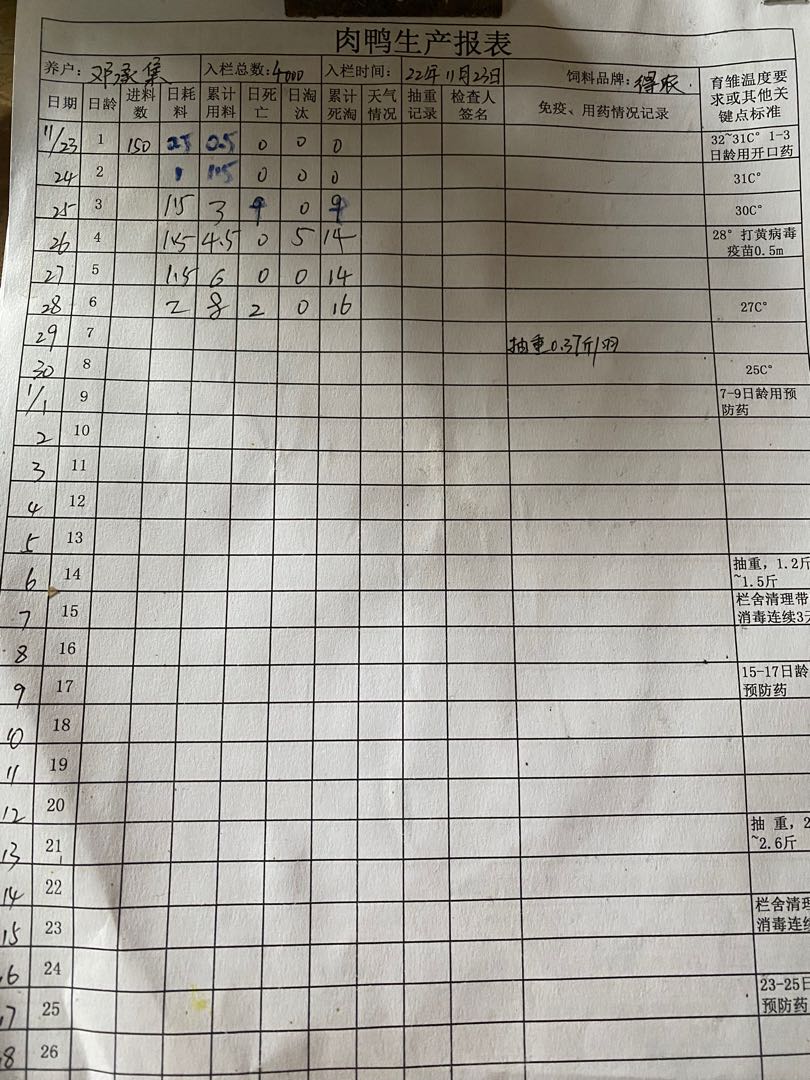 肉鸭生产报表
养户: 邓承集 入栏总数: 4000 入栏时间: 22年11月23日 饲料品牌: 得农 育雏温度要求或其他关键点标准
日期 日龄 进料数 日耗料 累计用料 日死亡 日淘汰 累计死淘 天气情况 抽重记录 检查人签名 免疫、用药情况记录
11/23 1 150 0.5 0.5 0 0 0 32~31C° 1-3日龄用开口药
24 2 1 1.5 0 0 0 31C°
25 3 1.5 3 9 0 9 30C°
26 4 1.5 4.5 0 5 14 28° 打黄病毒疫苗0.5m
27 5 1.5 6 0 0 14
28 6 2 8 2 0 16 27C°
29 7 抽重0.37斤/羽
30 8 25C°
1/1 9 7-9日龄用预防药
2 10
3 11
4 12
5 13
6 14 抽重，1.2斤~1.5斤
7 15 栏舍清理带消毒连续3天
8 16
9 17 15-17日龄预防药
10 18
11 19
12 20
13 21 抽 重，2~2.6斤
14 22
15 23 栏舍清理消毒连续
6 24
7 25 23-25日预防药
8 26